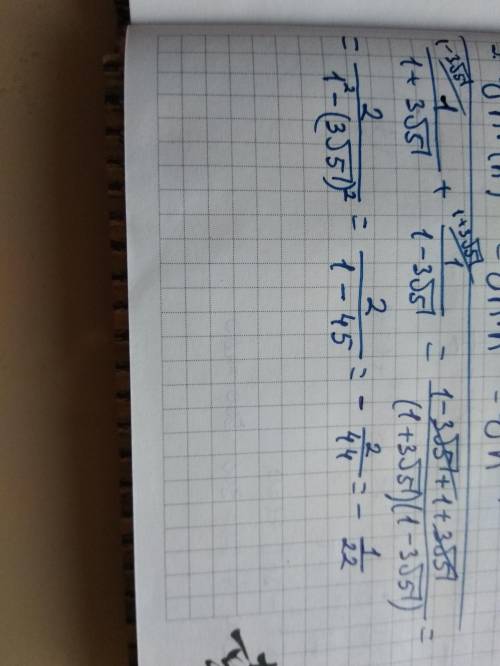 1/(1+3√5) + 1/(1-3√5) = (1-3√5+1+3√5)/((1+3√5)(1-3√5)) =
= 2/(1²-(3√5)²) = 2/(1-45) = -2/44 = -1/22